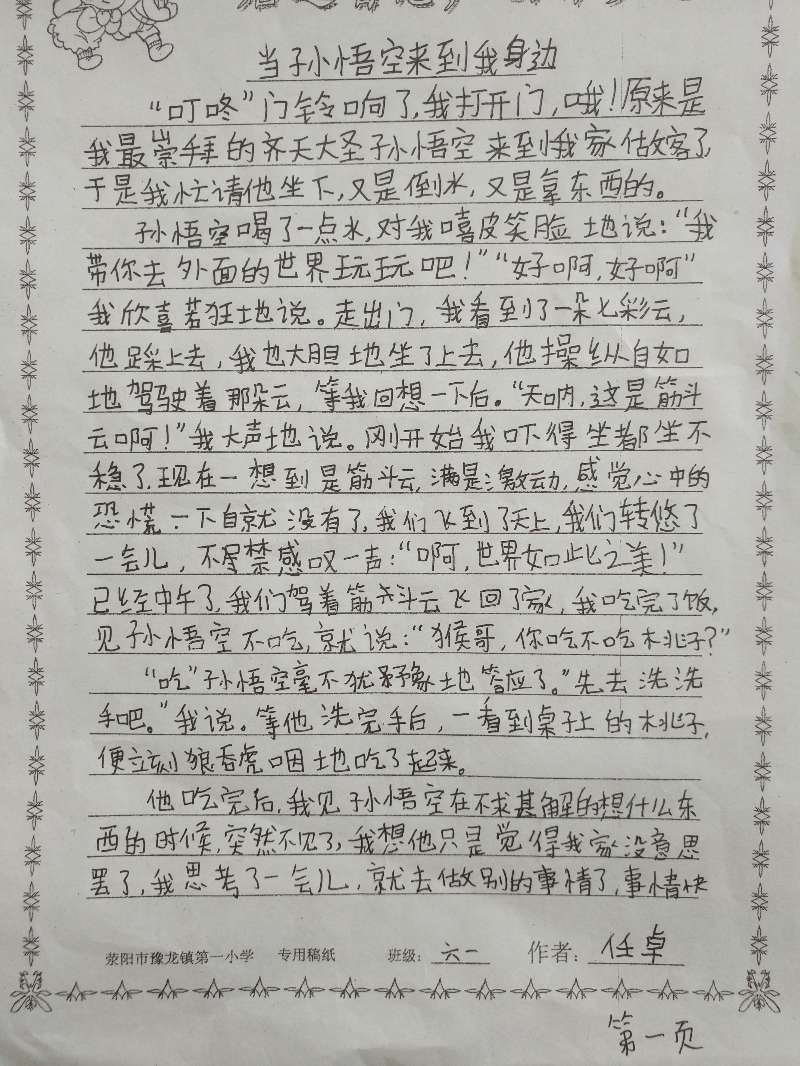 当孙悟空来到我身边
“叮咚”门铃响了,我打开门,哦!原来是
我最崇拜的齐天大圣孙悟空来到我家做客了,
于是我忙请他坐下,又是倒水,又是拿东西的。
孙悟空喝了一点水,对我嘻皮笑脸地说:“我
带你去外面的世界玩玩吧!”“好啊,好啊”
我欣喜若狂地说。走出门,我看到了一朵七彩云,
他踩上去,我也大胆地坐了上去,他操纵自如
地驾驶着那朵云,等我回想一下后。“天呐,这是筋斗
云啊!”我大声地说。刚开始我吓得坐都坐不
稳了,现在一想到是筋斗云,满是激动,感觉心中的
恐慌一下自就没有了,我们飞到了天上,我们转悠了
一会儿,不禁感叹一声:“啊,世界如此之美!”
已经中午了,我们驾着筋斗云飞回了家,我吃完了饭,
见孙悟空不吃,就说:“猴哥,你吃不吃桃子?”
“吃”孙悟空毫不犹豫地答应了。”先去洗洗
手吧。”我说。等他洗完手后,一看到桌子上的桃子,
便立刻狼吞虎咽地吃了起来。
他吃完后,我见孙悟空在不求甚解的想什么东
西的时候,突然不见了,我想他只是觉得我家没意思
罢了,我思考了一会儿,就去做别的事情了,事情快
荥阳市豫龙镇第一小学 专用稿纸 班级:六一 作者:任卓
第一页